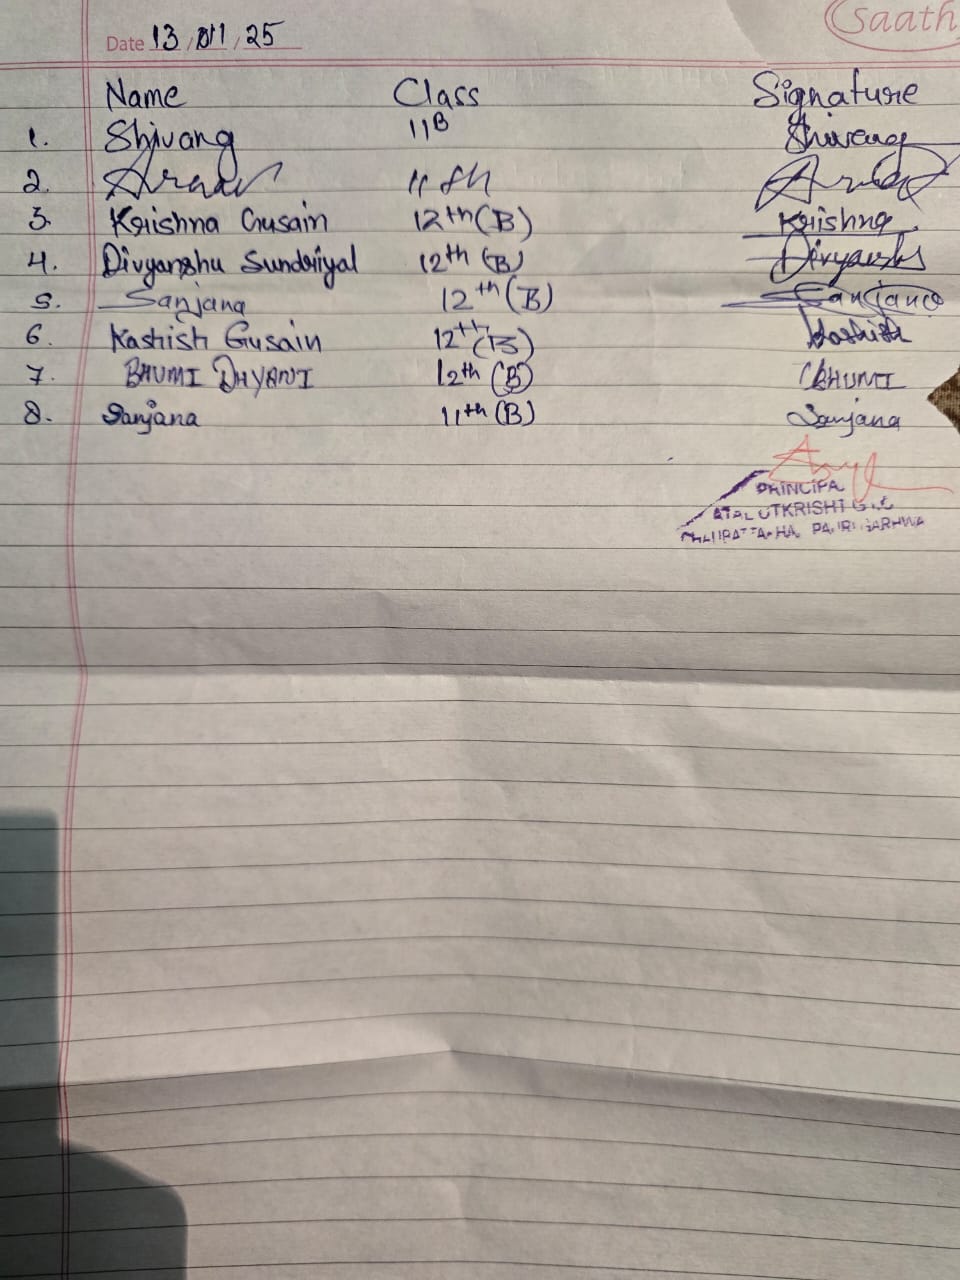 Saath
Date 13/11/25
Name Class Signature
1. Shivang 11B Shivang
2. 11th
3. Krishna Gusain 12th (B) Krishna
4. Divyanshu Sundriyal 12th (B) Divyanshu
5. Sanjana 12th (B) Sanjana
6. Kashish Gusain 12th (B) Kashish
7. BHUMI DHYANI 12th (B) BHUMI
8. Sanjana 11th (B) Sanjana
PRINCIPA
ATAL UTKRISHT